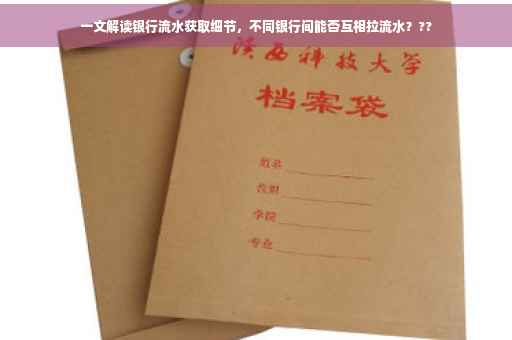 一文解读银行流水获取细节，不同银行间能否互相拉流水？??
陕西科技大学
档案袋
姓名
学院
专业